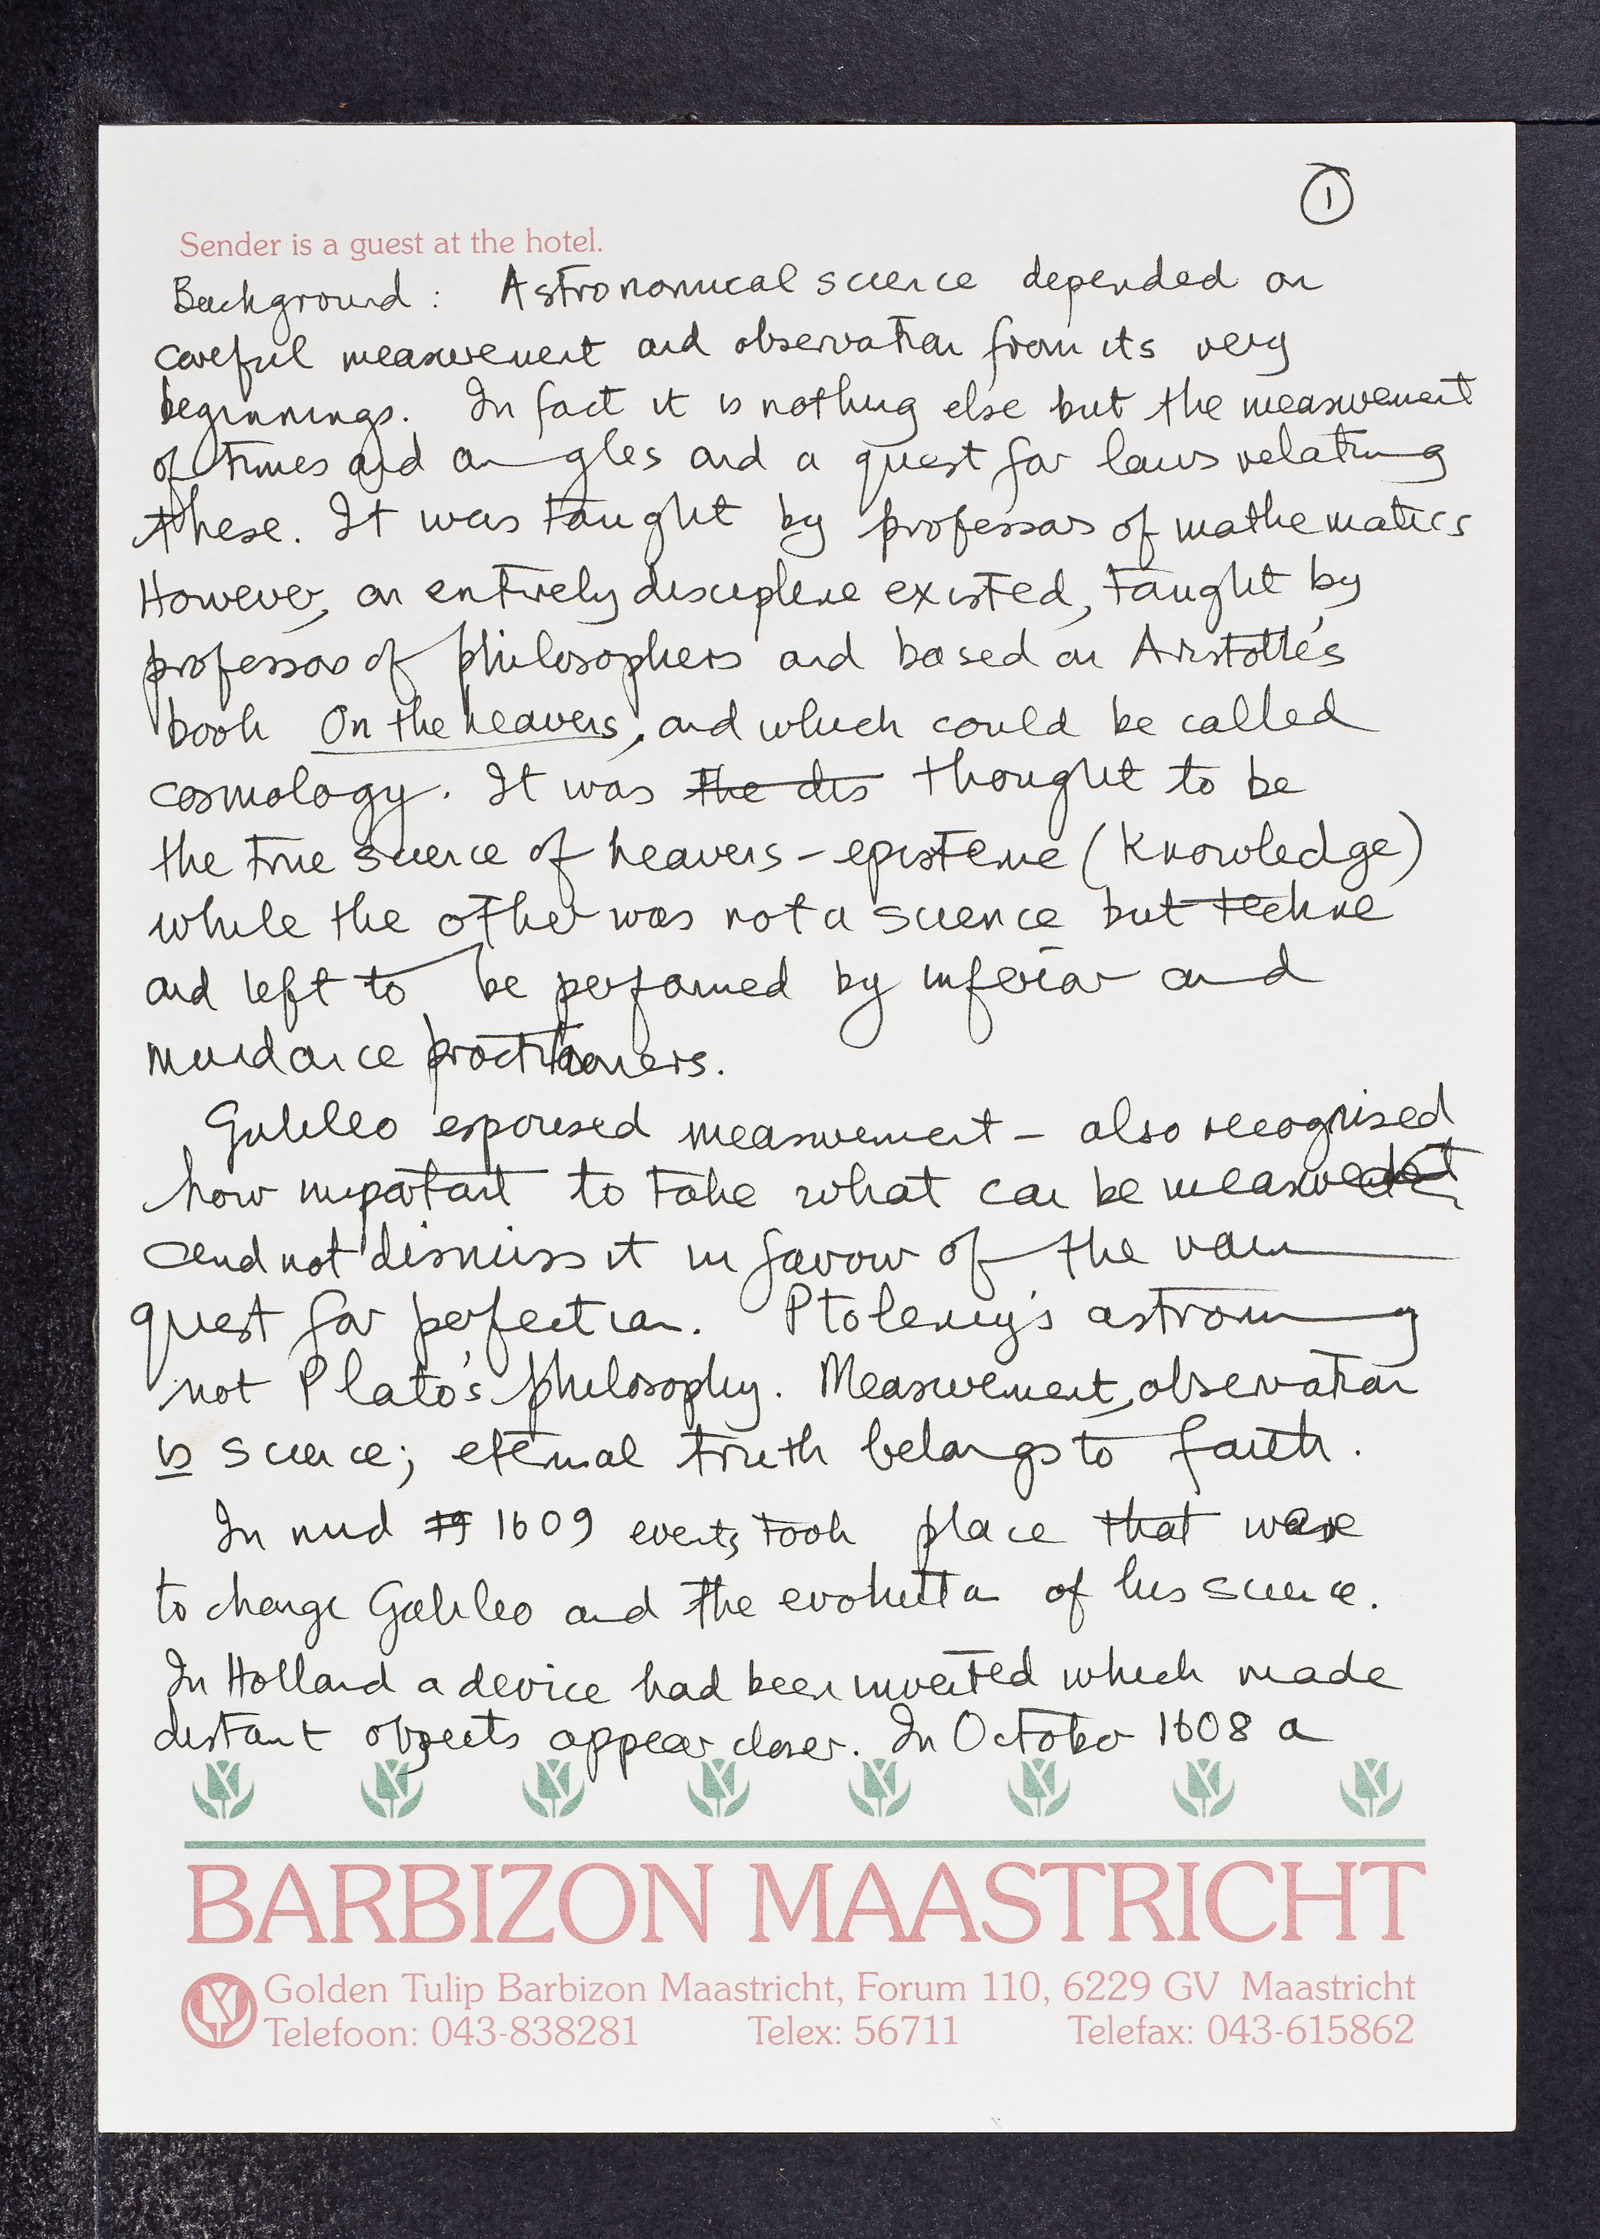 1
Sender is a guest at the hotel.
Background: Astronomical science depended on
careful measurement and observation from its very
beginnings. In fact it is nothing else but the measurement
of times and angles and a quest for laws relating
these. It was taught by professors of mathematics
However, an entirely discipline existed, taught by
professors of philosophers and based on Aristotle's
book On the heavens, and which could be called
cosmology. It was the dis thought to be
the true science of heavens - episteme (Knowledge)
while the other was not a science but techne
and left to be performed by inferior and
mundance practitioners.
Galileo espoused measurement - also recognised
how important to take what can be measured
and not dismiss it in favour of the vain
quest for perfection. Ptolemy's astronomy
not Plato's philosophy. Measurement, observation
is science; eternal truth belongs to faith.
In mid 1609 events took place that were
to change Galileo and the evolution of his science.
In Holland a device had been invented which made
distant objects appear closer. In October 1608 a
BARBIZON MAASTRICHT
Golden Tulip Barbizon Maastricht, Forum 110, 6229 GV Maastricht
Telefoon: 043-838281 Telex: 56711 Telefax: 043-615862